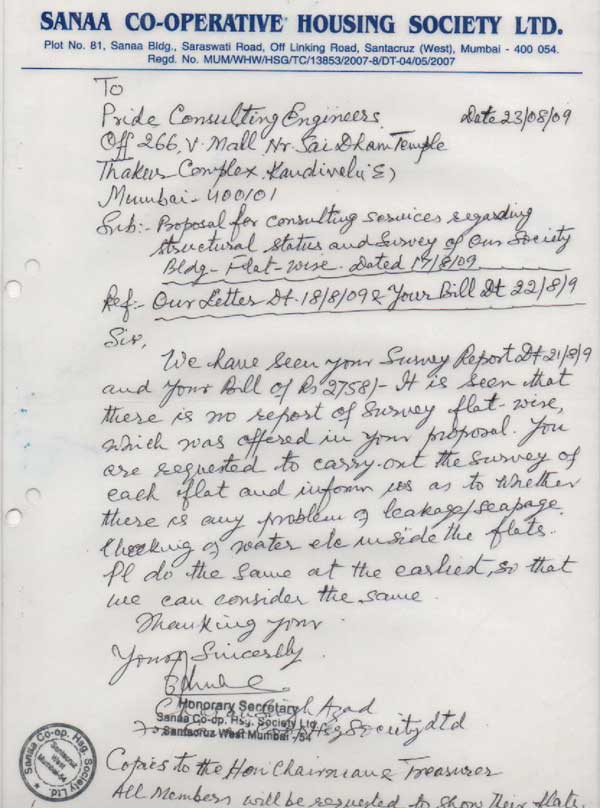 SANAA CO-OPERATIVE HOUSING SOCIETY LTD.
Plot No. 81, Sanaa Bldg., Saraswati Road, Off Linking Road, Santacruz (West), Mumbai - 400 054.
Regd. No. MUM/WHW/HSG/TC/13853/2007-8/DT-04/05/2007
To
Pride Consulting Engineers Date 23/08/09
Off 266, V. Mall, Nr. Sai Dham Temple
Thakur Complex, Kandivelи (E)
Mumbai - 400101
Sub:- Proposal for consulting services regarding
structural status and Survey of Our Society
Bldg - Flat-wise. Dated 17/8/09
Ref:- Our Letter Dt. 18/8/09 & Your Bill Dt 22/8/9
Sir,
We have seen your Survey Report Dt 21/8/9
and Your Bill of Rs 2758/- It is seen that
there is no report of Survey flat-wise,
which was offered in your proposal. You
are requested to carry-out the survey of
each flat and inform us as to whether
there is any problem of leakage/seepage,
Checking of water etc inside the flats.
Pl do the same at the earliest, so that
we can consider the same.
Thanking your
Yours Sincerely
Honorary Secretary
Azad
Sanaa Co-op. Hsg. Society Ltd.
Hsg Society Ltd
Santacruz West Mumbai - 54
Sanaa Co-op. Hsg. Society Ltd.
Santacruz West Mumbai-54
Copies to the Hon Chairman & Treasurer
All Members will be requested to show their flats